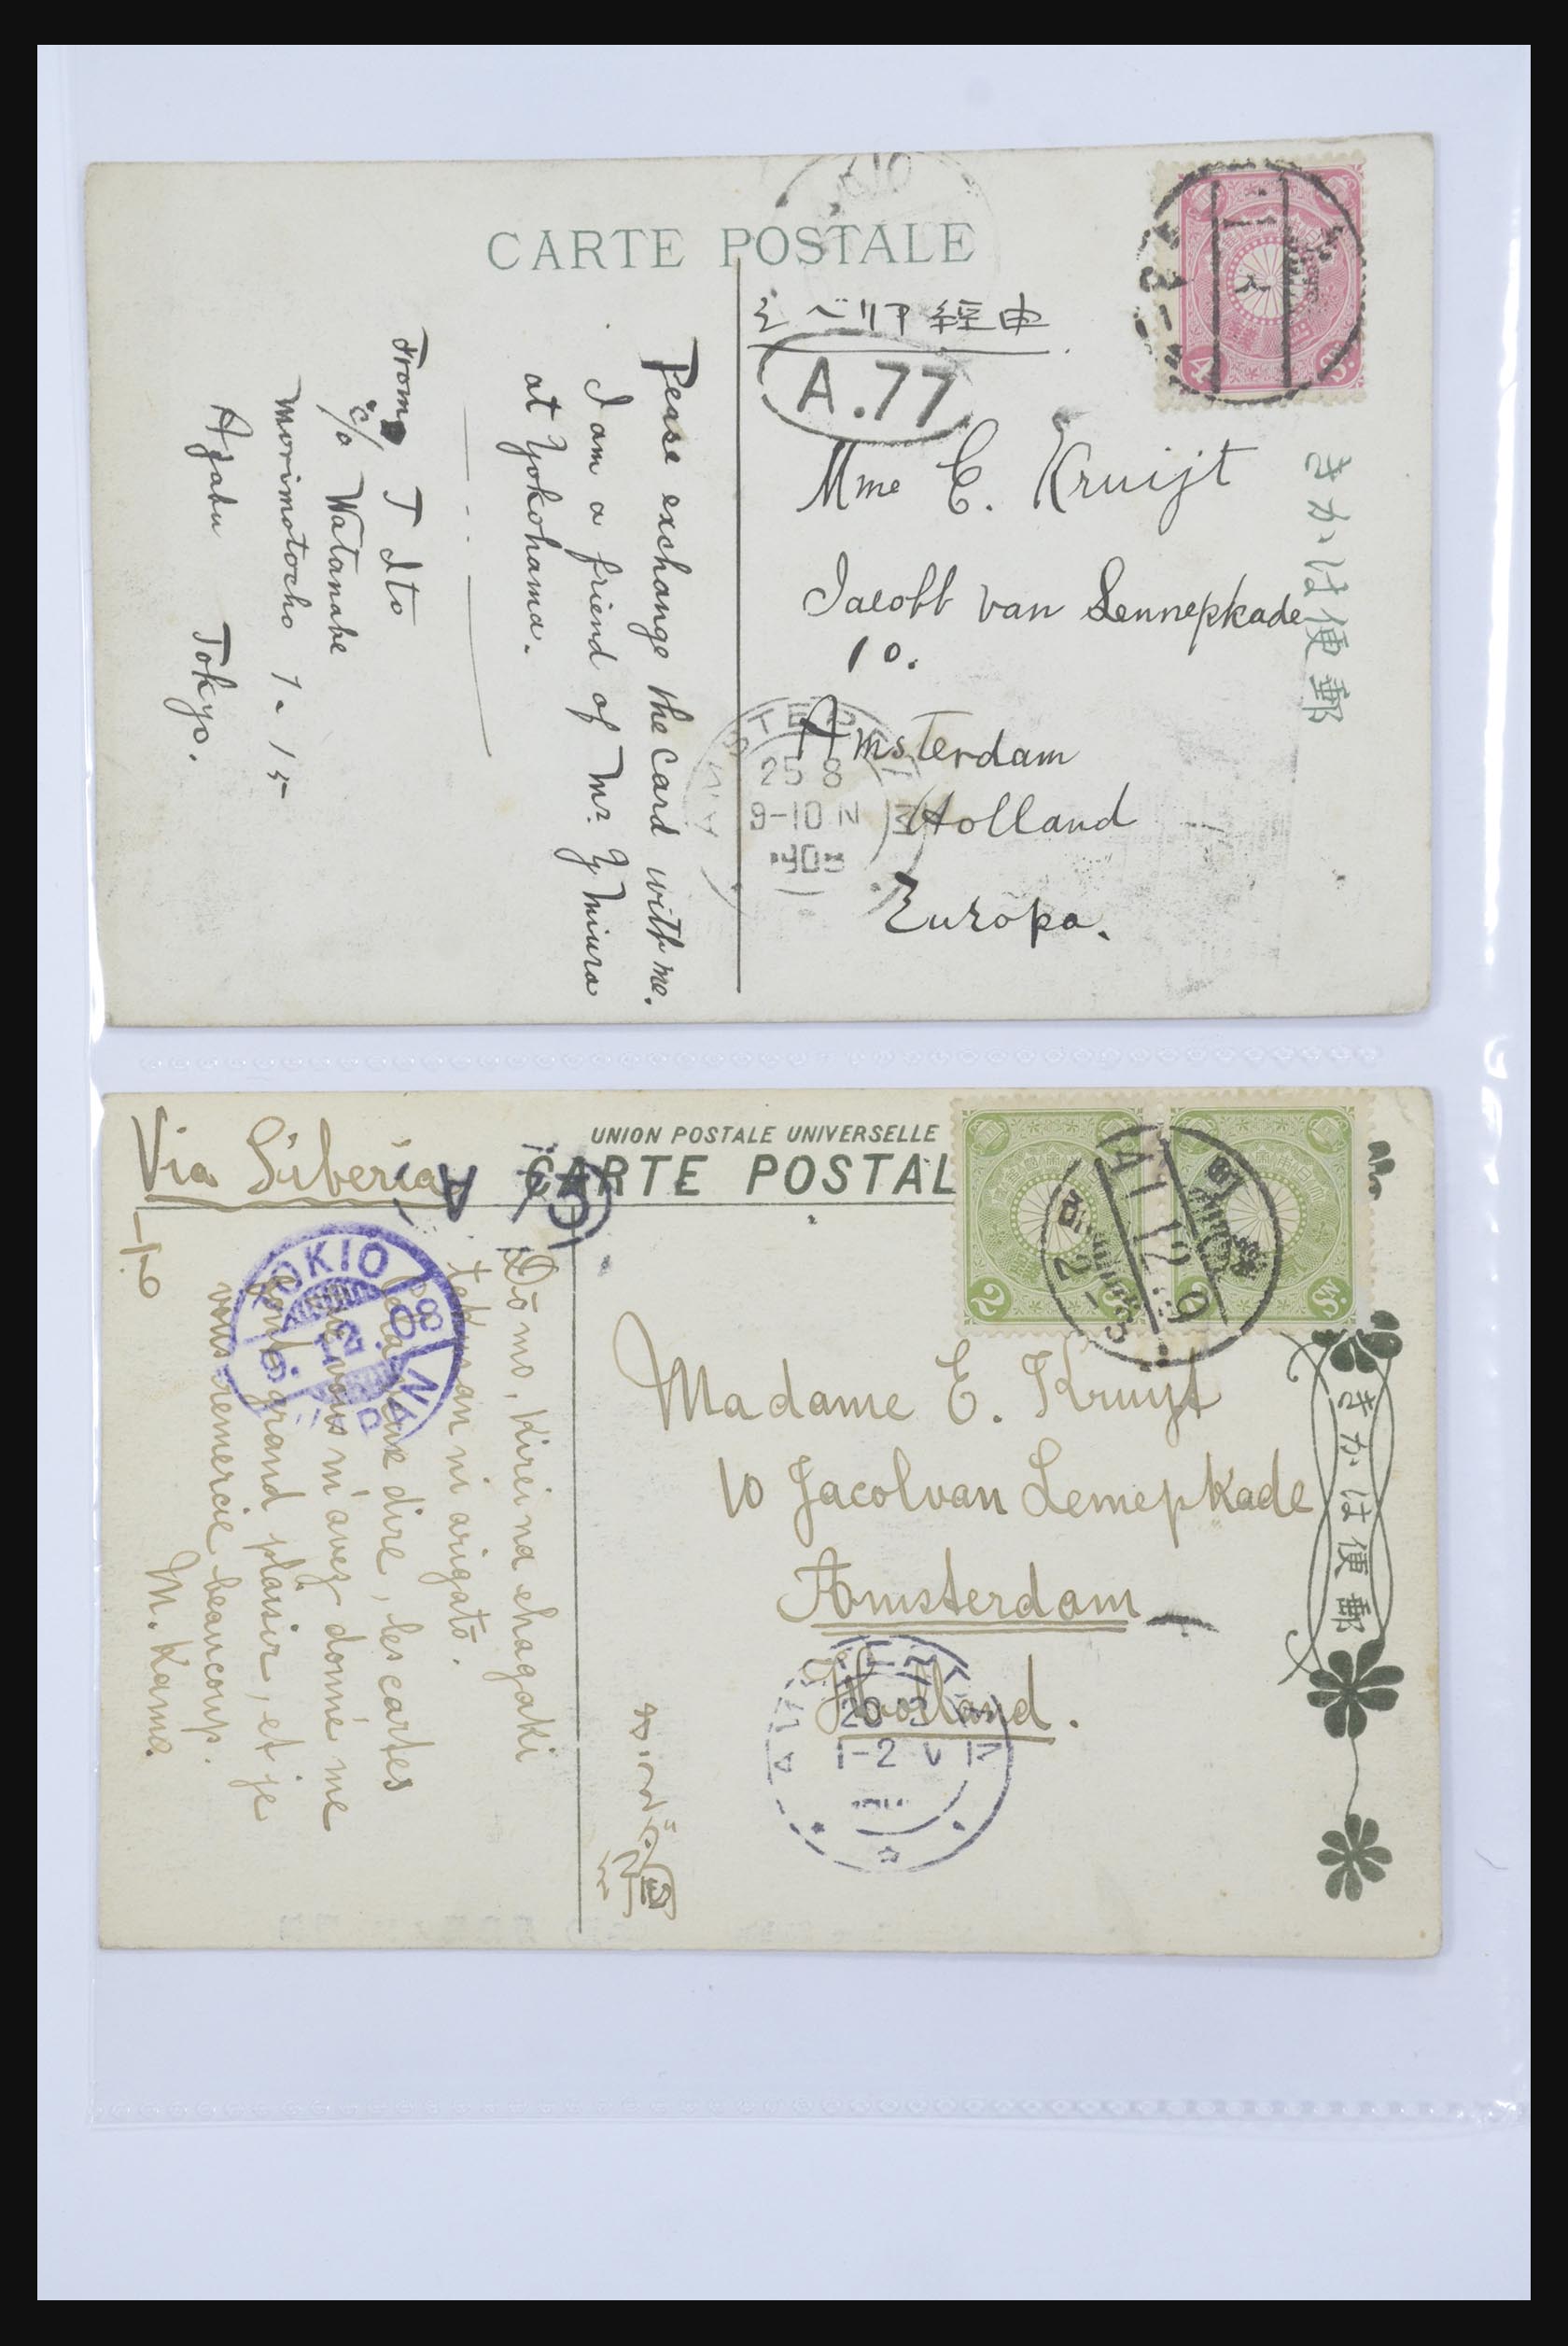 CARTE POSTALE
シベリア経由
A.77
Mme C. Kruijt
Jacobb van Lennepkade
10.
Amsterdam
Holland
Europa.
きかは便郵
25 8
9-10 N
Pease exchange the card with me.
I am a friend of Mr. Y Miura
at Yokohama.
From T Ito
c/o Watanabe
Morimotocho 1-15
Azabu Tokyo.
Via Siberia
UNION POSTALE UNIVERSELLE
CARTE POSTAL
A
Madame E. Kruyt
10 Jacolvan Lennepkade
Amsterdam
Holland.
きかは便郵
41 12 9
TOKIO
JAPAN
9. 12. 08
1-2 V
Dōmo, kirei na ehagaki
takusan ni arigatō.
C'est à dire, les cartes
que vous m'avez donné me
font grand plaisir, et je
vous remercie beaucoup.
M. Kamo.